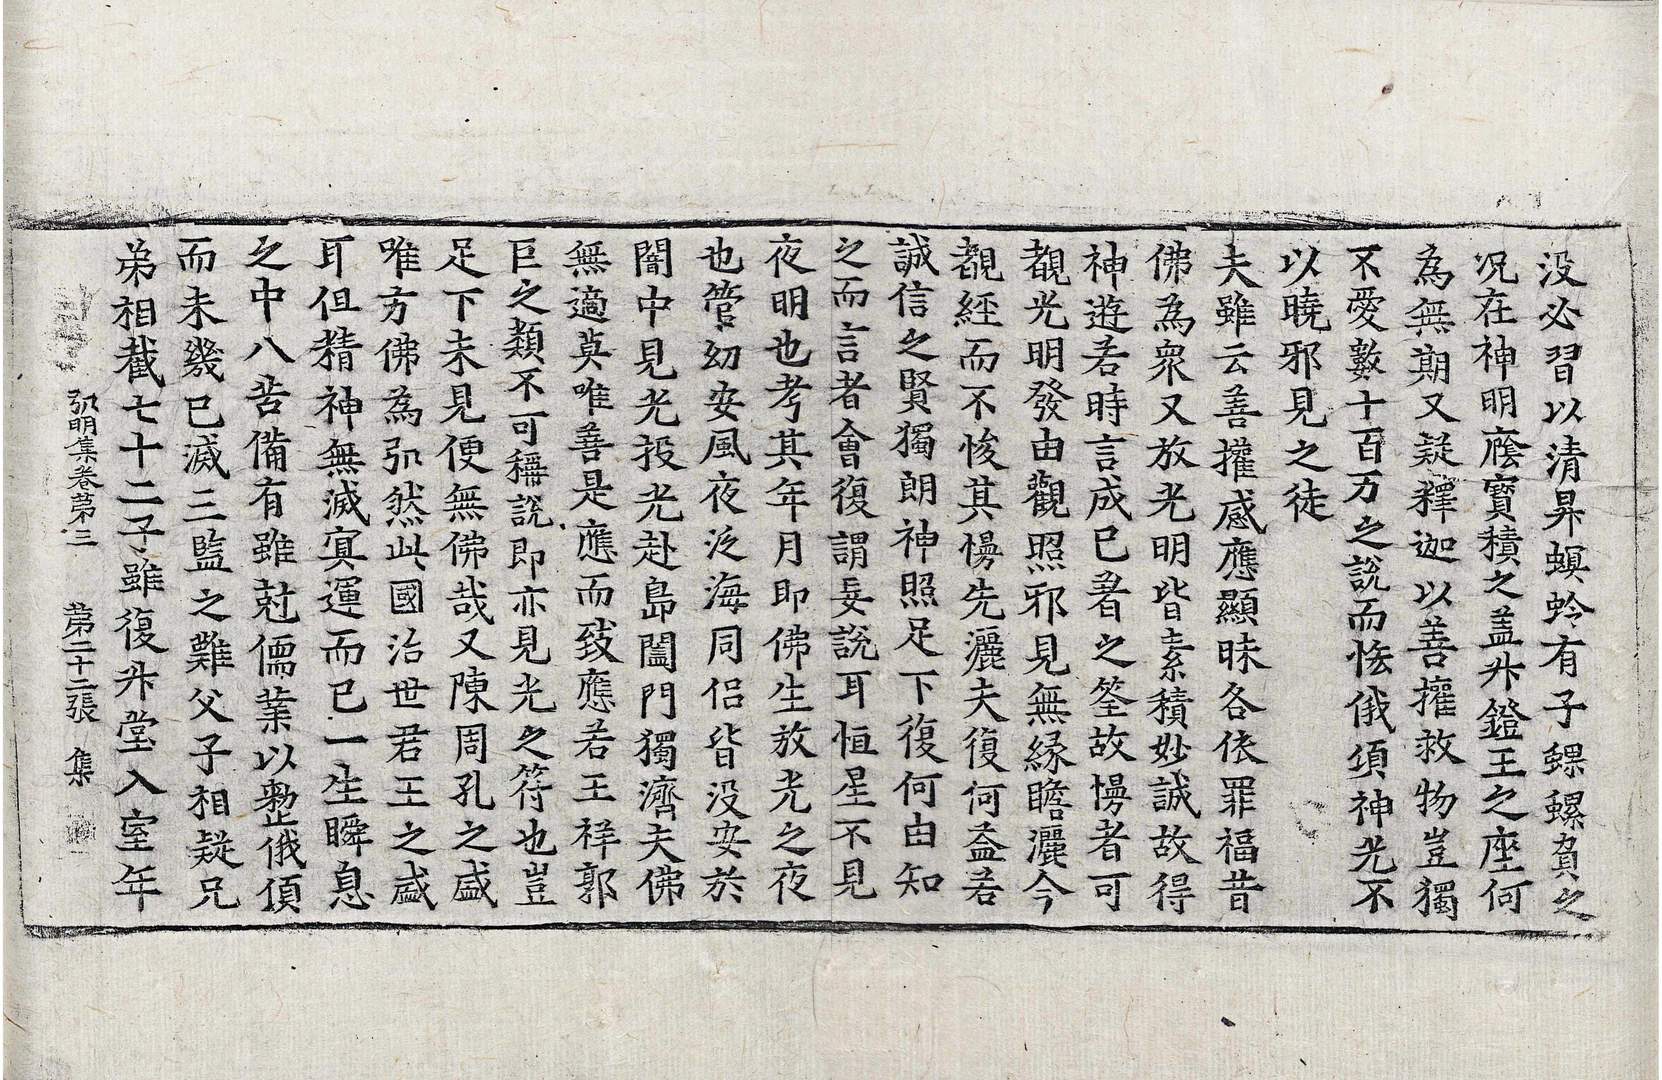 没必習以清昇螟蛉有子蜾蠃負之
况在神明䕃寳積之蓋升鐙王之座何
為無期又疑釋迦以善攉救物豈獨
不愛數十百万之說而恡俄湏神光不
以曉邪見之徒
夫雖云善攉感應顯昧各依罪福昔
佛為衆又放光明皆素積妙誠故得
神遊若時言成已著之筌故慢者可
覩光明發由觀照邪見無縁瞻灑今
覩經而不悛其慢先灑夫復何益若
誠信之賢獨朗神照足下復何由知
之而言者會復謂妄說耳恒星不見
夜明也考其年月即佛生放光之夜
也管幼安風夜泛海同侣皆没安於
闇中見光投光赴島闔門獨濟夫佛
無適莫唯善是應而致應若王祥郭
巨之類不可稱說即亦見光之符也豈
足下未見便無佛哉又陳周孔之盛
唯方佛為弘然此國治世君王之盛
耳但精神無滅㝠運而已一生瞬息
之中八苦備有雖尅儒業以整俄湏
而未幾已滅三監之難父子相疑兄
弟相截七十二子雖復升堂入室年
弘明集卷第三 第二十二張 集